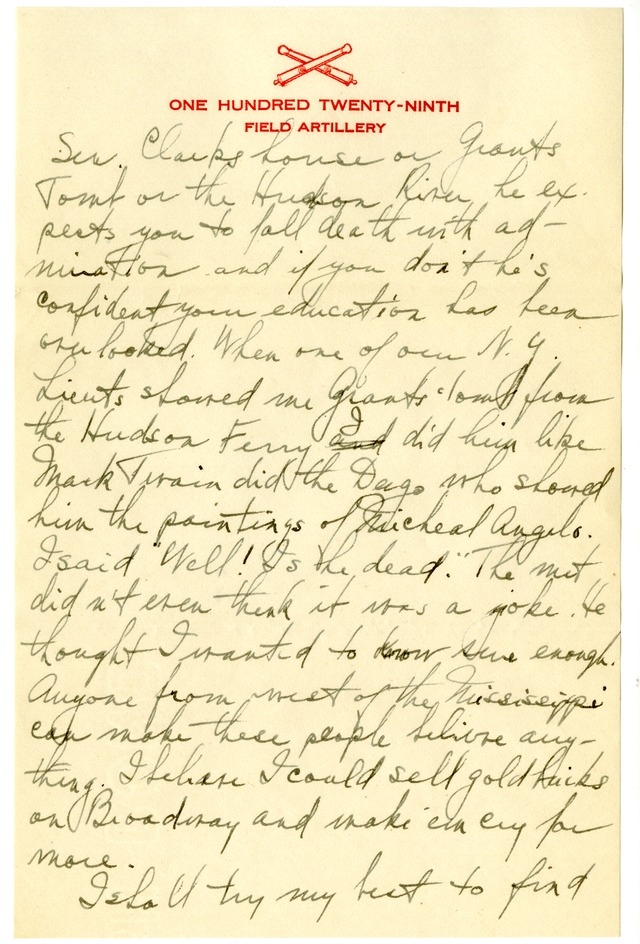 ONE HUNDRED TWENTY-NINTH
FIELD ARTILLERY
Sen. Clarks house or Grants
Tomb or the Hudson River, he ex-
pects you to fall death with ad-
miration and if you don't he's
confident your education has been
overlooked. When one of our N.Y.
Lieuts showed me Grants Tomb from
the Hudson Ferry I and did him like
Mark Twain did the Dago who showed
him the paintings of Micheal Angelo.
I said "Well! Is he dead." The nut
didn't even think it was a joke. He
thought I wanted to know sure enough.
Anyone from west of the Mississippi
can make these people believe any-
thing. I believe I could sell gold bricks
on Broadway and make em cry for
more.
I shall try my best to find